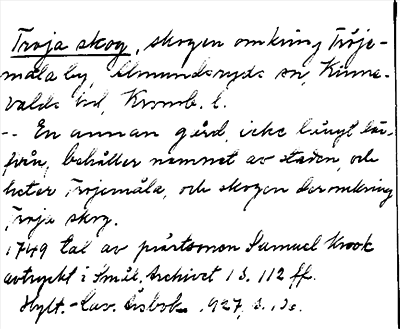 Troja skog, skogen omkring Tröje-
måla by, Almundsryds sn, Kinne-
valds hd, Kronob. l.
-- En annan gård, icke långt här-
ifrån, behåller namnet av staden, och
heter Trojemåla, och skogen deromkring
Troja skog.
1749 tal av prästsonen Samuel Krook
avtryckt i Smål. Archivet 1 s. 112 ff.
Hylt.-Cav. Årsbok 1927, s.